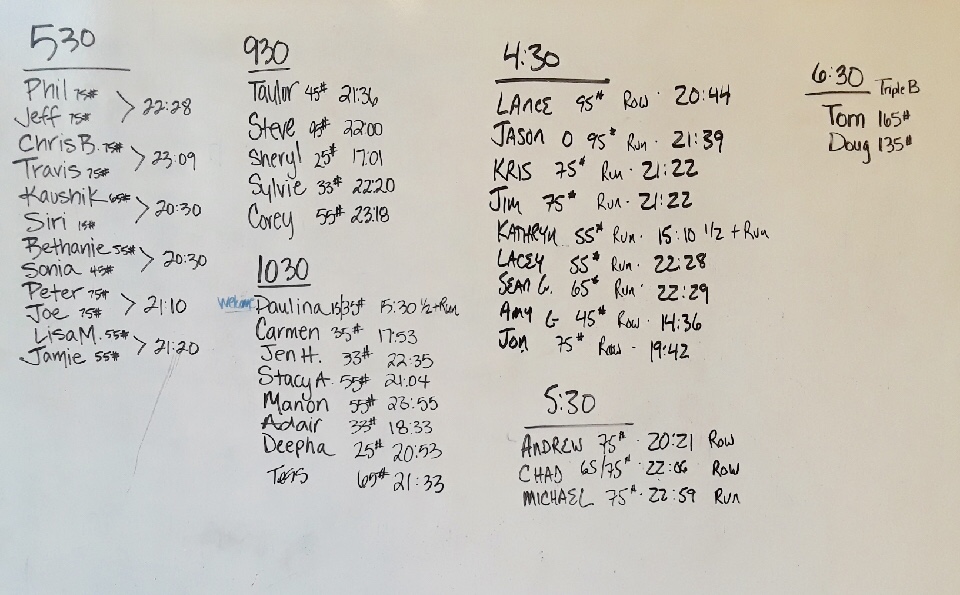 530
Phil 75#
Jeff 75#
22:28
Chris B. 75#
Travis 75#
23:09
Kaushik 65#
Siri 15#
20:30
Bethanie 55#
Sonia 45#
20:30
Peter 75#
Joe 75#
21:10
Lisa M. 55#
Jamie 55#
21:20
930
Taylor 45# 21:36
Steve 95# 22:00
Sheryl 25# 17:01
Sylvie 33# 22:20
Corey 55# 23:18
1030
Welcome Paulina 15/35# 15:30 1/2 + Run
Carmen 35# 17:53
Jen H. 33# 22:35
Stacy A. 55# 21:04
Manon 55# 23:55
Adair 33# 18:33
Deepha 25# 20:53
65# 21:33
4:30
LANCE 95# Row · 20:44
JASON O 95# Run · 21:39
KRIS 75# Run · 21:22
Jim 75# Run · 21:22
KATHRYN 55# Run · 15:10 1/2 + Run
LACEY 55# Run · 22:28
SEAN G. 65# Run · 22:29
Amy G 45# Row · 14:36
Jon 75# Row · 19:42
5:30
ANDREW 75# · 20:21 Row
CHAD 65/75# · 22:06 Row
MICHAEL 75# · 22:59 Run
6:30 Triple B
Tom 165#
Doug 135#